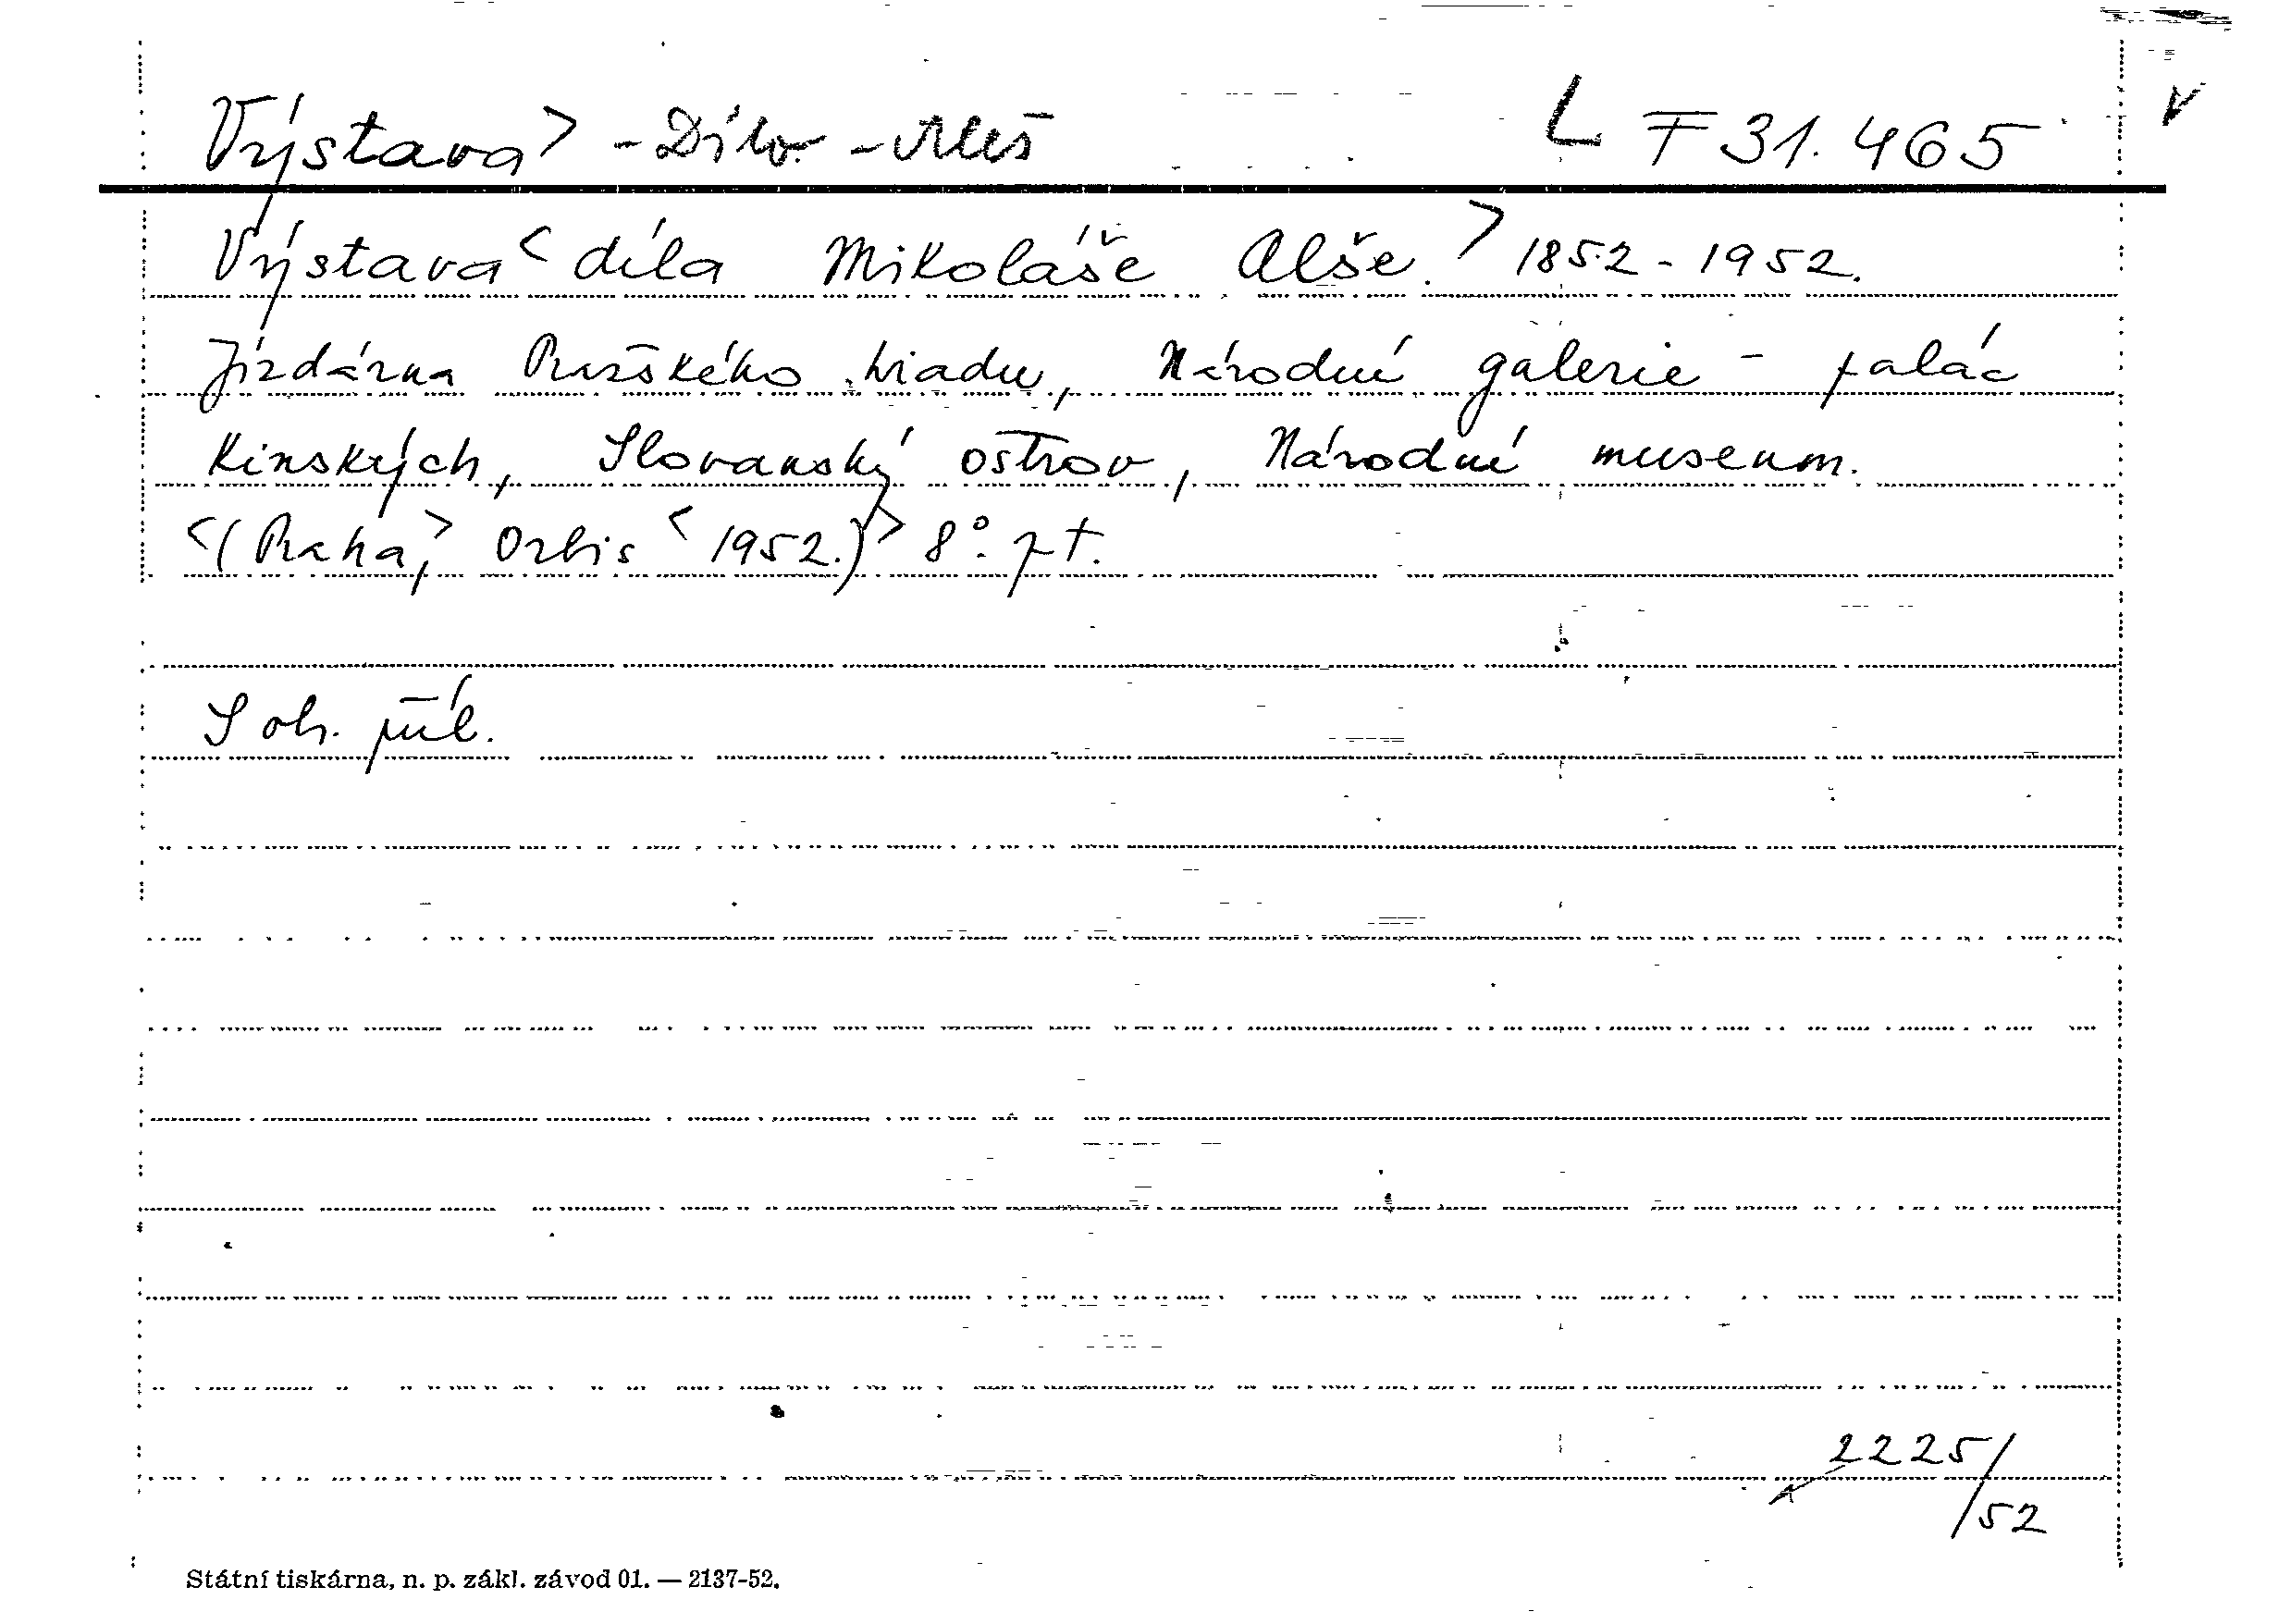 Výstava> - Dílo - Aleš L F 31.465 V
Výstava < díla Mikoláše Alše.> 1852 - 1952.
Jízdárna Pražského hradu, Národní galerie - palác
Kinských, Slovanský ostrov, Národní museum.
<(Praha,> Orbis < 1952.)> 8°. 7 t.
S ob. příl.
2225/
/52
Státní tiskárna, n. p. zákl. závod 01. — 2137-52.